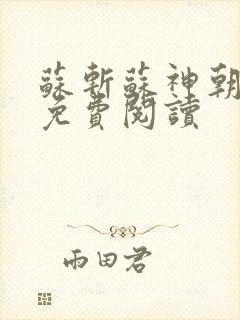 蘇斬蘇神朝
免費閱讀
雨田君